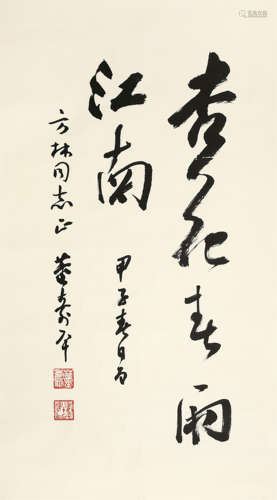 杏花春雨
江南
甲子春日为
方林同志正
董寿平